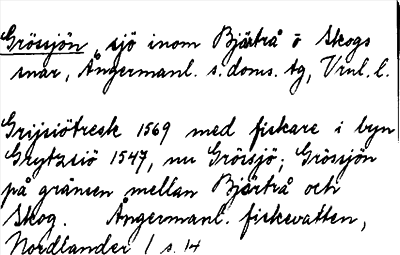 Grössjön, sjö inom Bjärtrå o Skogs
snar, Ångermanl. s. doms. tg, Vnl. l.
Grijsiötresk 1569 med fiskare i byn
Grytzsiö 1547, nu Gröisjö; Grössjön
på gränsen mellan Bjärtrå och
Skog. Ångermanl. fiskevatten,
Nordlander 1 s. 14